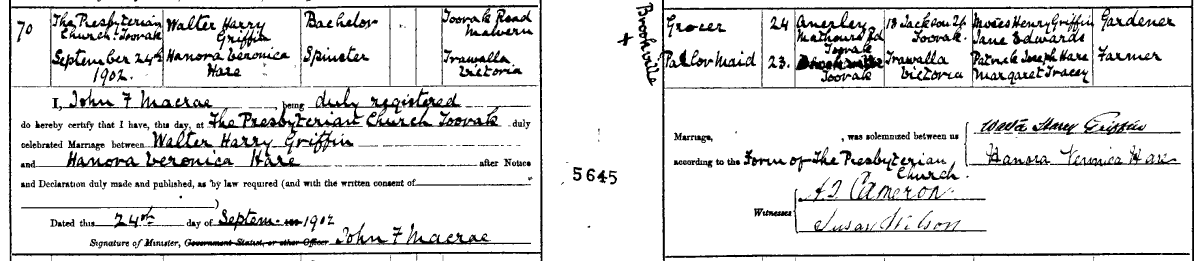 70
The Presbyterian Church Toorak
September 24th 1902
Walter Harry Griffin
Hanora Veronica Hare
Bachelor
Spinster
Toorak Road Malvern
Trawalla Victoria
I, John F Macrae, being duly registered
do hereby certify that I have, this day, at The Presbyterian Church Toorak duly
celebrated Marriage between Walter Harry Griffin
and Hanora Veronica Hare after Notice
and Declaration duly made and published, as by law required (and with the written consent of
)
Dated this 24th day of Septem- 1902
Signature of Minister, Government Statist, or other Officer John F Macrae
5645
Brookville
+
Grocer
24
Anerley
Toorak
Toorak
Moses Henry Griffin
Jane Edwards
Gardener
Parlor Maid
23.
Toorak
Trawalla
Victoria
Patrick Joseph Hare
Margaret Tracey
Farmer
Marriage, was solemnized between us
Walter Harry Griffin
Hanora Veronica Hare
according to the Form of The Presbyterian
Church.
Witnesses
Cameron
Susan Wilson